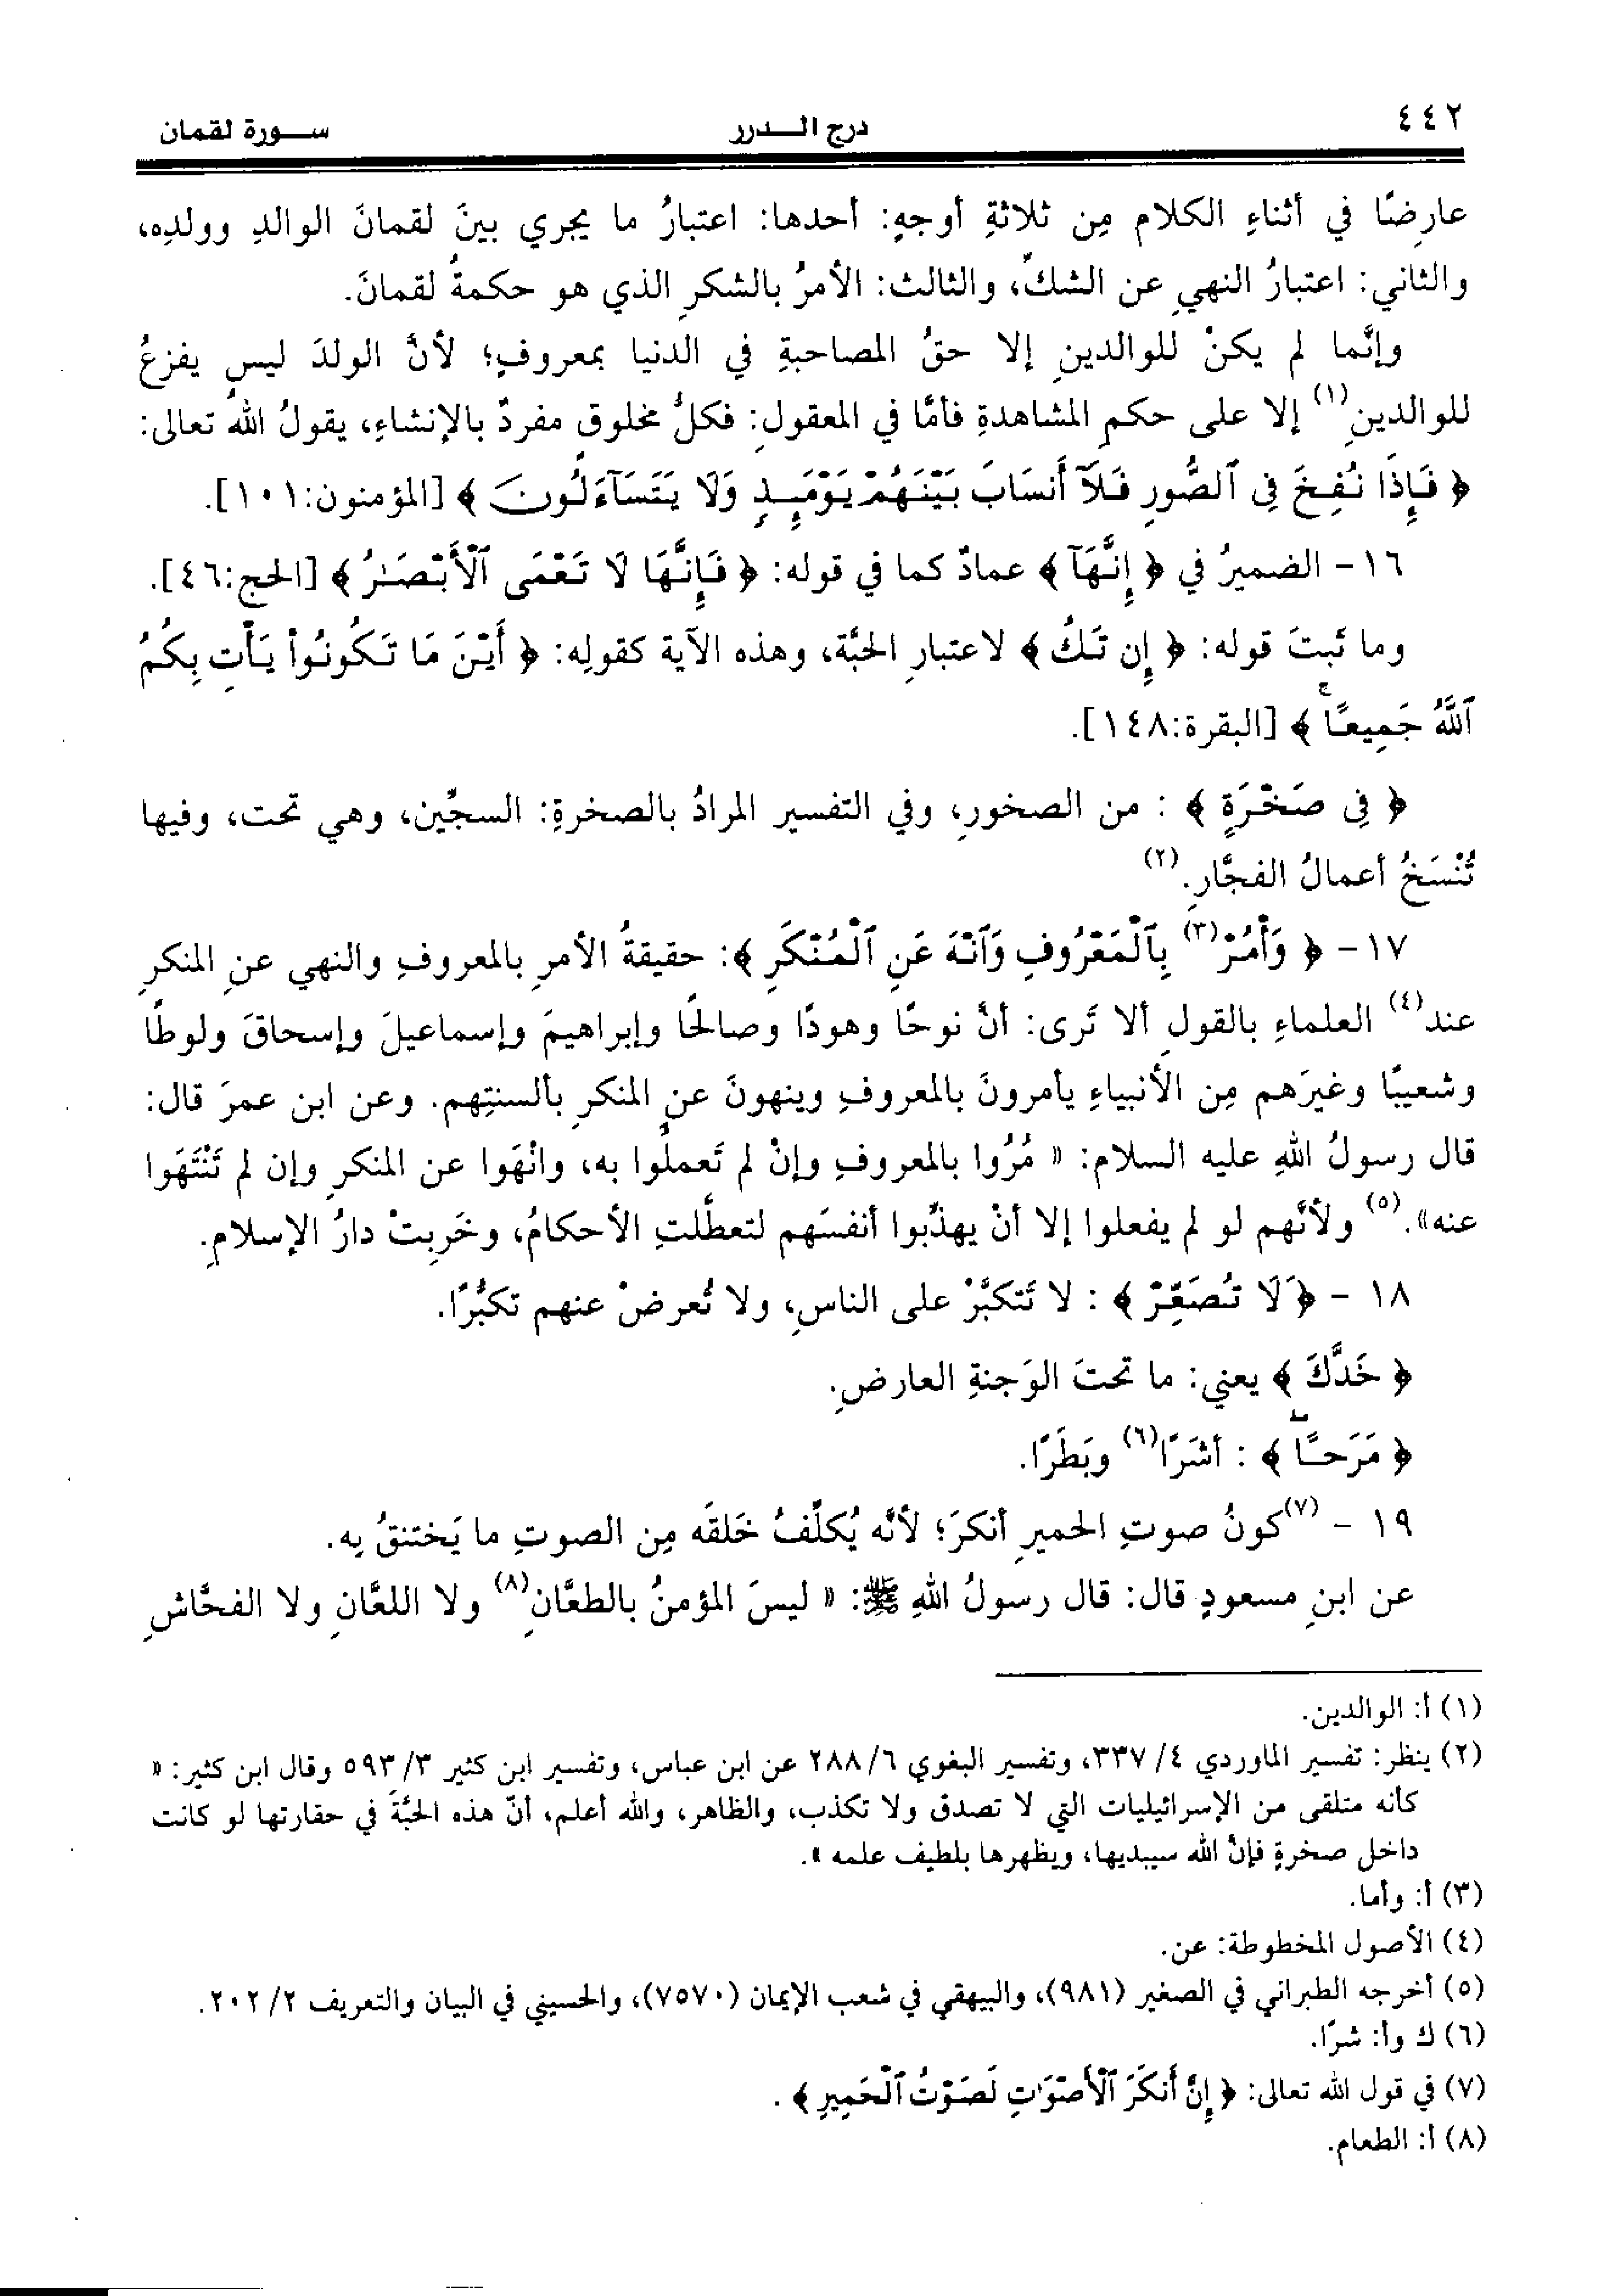 ٤٤٢ درج الـــدرر ســـورة لقمان
عارضًا في أثناءِ الكلام مِن ثلاثةِ أوجهٍ: أحدها: اعتبارُ ما يجري بينَ لقمانَ الوالدِ وولدِه،
والثاني: اعتبارُ النهيِ عن الشكّ، والثالث: الأمرُ بالشكرِ الذي هو حكمةُ لقمانَ.
وإنَّما لم يكنْ للوالدينِ إلا حقُ المصاحبةِ في الدنيا بمعروفٍ؛ لأنَّ الولدَ ليس يفزعُ
للوالدينِ(١) إلا على حكمِ المشاهدةِ فأمَّا في المعقولِ: فكلُّ مخلوقٍ مفردٌ بالإنشاءِ، يقولُ اللهُ تعالى:
﴿ فَإِذَا نُفِخَ فِى ٱلصُّورِ فَلَآ أَنسَابَ بَيْنَهُمْ يَوْمَئِذٍ وَلَا يَتَسَآءَلُونَ ﴾ [المؤمنون:١٠١].
١٦- الضميرُ في ﴿ إِنَّهَآ ﴾ عمادٌ كما في قوله: ﴿ فَإِنَّهَا لَا تَعْمَى ٱلْأَبْصَـٰرُ ﴾ [الحج:٤٦].
وما ثبتَ قوله: ﴿ إِن تَكُ ﴾ لاعتبارِ الحبَّة، وهذه الآية كقولِه: ﴿ أَيْنَ مَا تَكُونُوا۟ يَأْتِ بِكُمُ
ٱللَّهُ جَمِيعًا ۚ ﴾ [البقرة:١٤٨].
﴿ فِى صَخْرَةٍ ﴾ : من الصخورِ، وفي التفسير المرادُ بالصخرةِ: السجِّين، وهي تحت، وفيها
تُنْسَخُ أعمالُ الفجَّارِ.(٢)
١٧- ﴿ وَأْمُرْ(٣) بِٱلْمَعْرُوفِ وَٱنْهَ عَنِ ٱلْمُنْكَرِ ﴾: حقيقةُ الأمرِ بالمعروفِ والنهي عنِ المنكرِ
عند(٤) العلماءِ بالقولِ ألا تَرى: أنَّ نوحًا وهودًا وصالحًا وإبراهيمَ وإسماعيلَ وإسحاقَ ولوطًا
وشعيبًا وغيرَهم مِن الأنبياءِ يأمرونَ بالمعروفِ وينهونَ عنِ المنكرِ بألسنتِهم. وعن ابن عمرَ قال:
قال رسولُ اللهِ عليه السلام: « مُرُوا بالمعروفِ وإنْ لم تَعملُوا به، وانْهَوا عن المنكرِ وإن لم تَنْتَهَوا
عنه».(٥) ولأنَّهم لو لم يفعلوا إلا أنْ يهذِّبوا أنفسَهم لتعطَّلتِ الأحكامُ، وخَرِبتْ دارُ الإسلامِ.
١٨ - ﴿ لَا تُصَعِّرْ ﴾ : لا تَتكبَّرْ على الناسِ، ولا تُعرضْ عنهم تكبُّرًا.
﴿ خَدَّكَ ﴾ يعني: ما تحتَ الوَجنةِ العارضِ.
﴿ مَرَحًا ۖ ﴾ : أشَرًا(٦) وبَطَرًا.
١٩ - (٧)كونُ صوتِ الحميرِ أنكرَ؛ لأنَّه يُكلِّفُ خَلقَه مِن الصوتِ ما يَختنقُ بِه.
عن ابنِ مسعودٍ قال: قال رسولُ اللهِ ﷺ: « ليسَ المؤمنُ بالطعَّانِ(٨) ولا اللعَّانِ ولا الفحَّاشِ
(١) أ: الوالدين.
(٢) ينظر: تفسير الماوردي ٤/ ٣٣٧، وتفسير البغوي ٦/ ٢٨٨ عن ابن عباس، وتفسير ابن كثير ٣/ ٥٩٣ وقال ابن كثير: «
كأنه متلقى من الإسرائيليات التي لا تصدق ولا تكذب، والظاهر، والله أعلم، أنّ هذه الحبَّةَ في حقارتها لو كانت
داخل صخرةٍ فإنَّ الله سيبديها، ويظهرها بلطيف علمه ».
(٣) أ: وأما.
(٤) الأصول المخطوطة: عن.
(٥) أخرجه الطبراني في الصغير (٩٨١)، والبيهقي في شعب الإيمان (٧٥٧٠)، والحسيني في البيان والتعريف ٢/ ٢٠٢.
(٦) ك وأ: شرًا.
(٧) في قول الله تعالى: ﴿ إِنَّ أَنكَرَ ٱلْأَصْوَٰتِ لَصَوْتُ ٱلْحَمِيرِ ﴾ .
(٨) أ: الطعام.